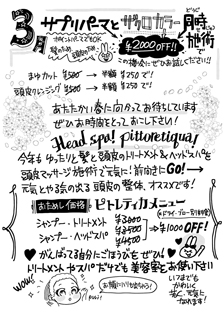 3月 サプリパーマと ザクロカラー 同時施術で
ポイントパーマでもOK
¥2000 OFF!!
この機会にぜひお試しください!!
まゆカット ¥500 → 半額 ¥250で!
頭皮クレンジング ¥500 → 半額 ¥250で!
あたたかい春に向かってお待ちしています
ぜひお時間をとってお越し下さい!
Head spa! pittoretiqua!
今年もゆったりと髪と頭皮のトリートメント&ヘッドスパと
頭皮マッサージ施術で元気に!前向きにGO!→
元気とやる気の出る頭皮の整体、オススメです!
お試し価格 ピトレティカメニュー
※ドライ・ブロー別料金
シャンプー・トリートメント
シャンプー・ヘッドスパ
¥4500
→ ¥1000 OFF!!
がんばってる自分にごほうびをぜひ
トリートメントやスパだけでも美容室をお使い下さい
WOW!
いつまでも